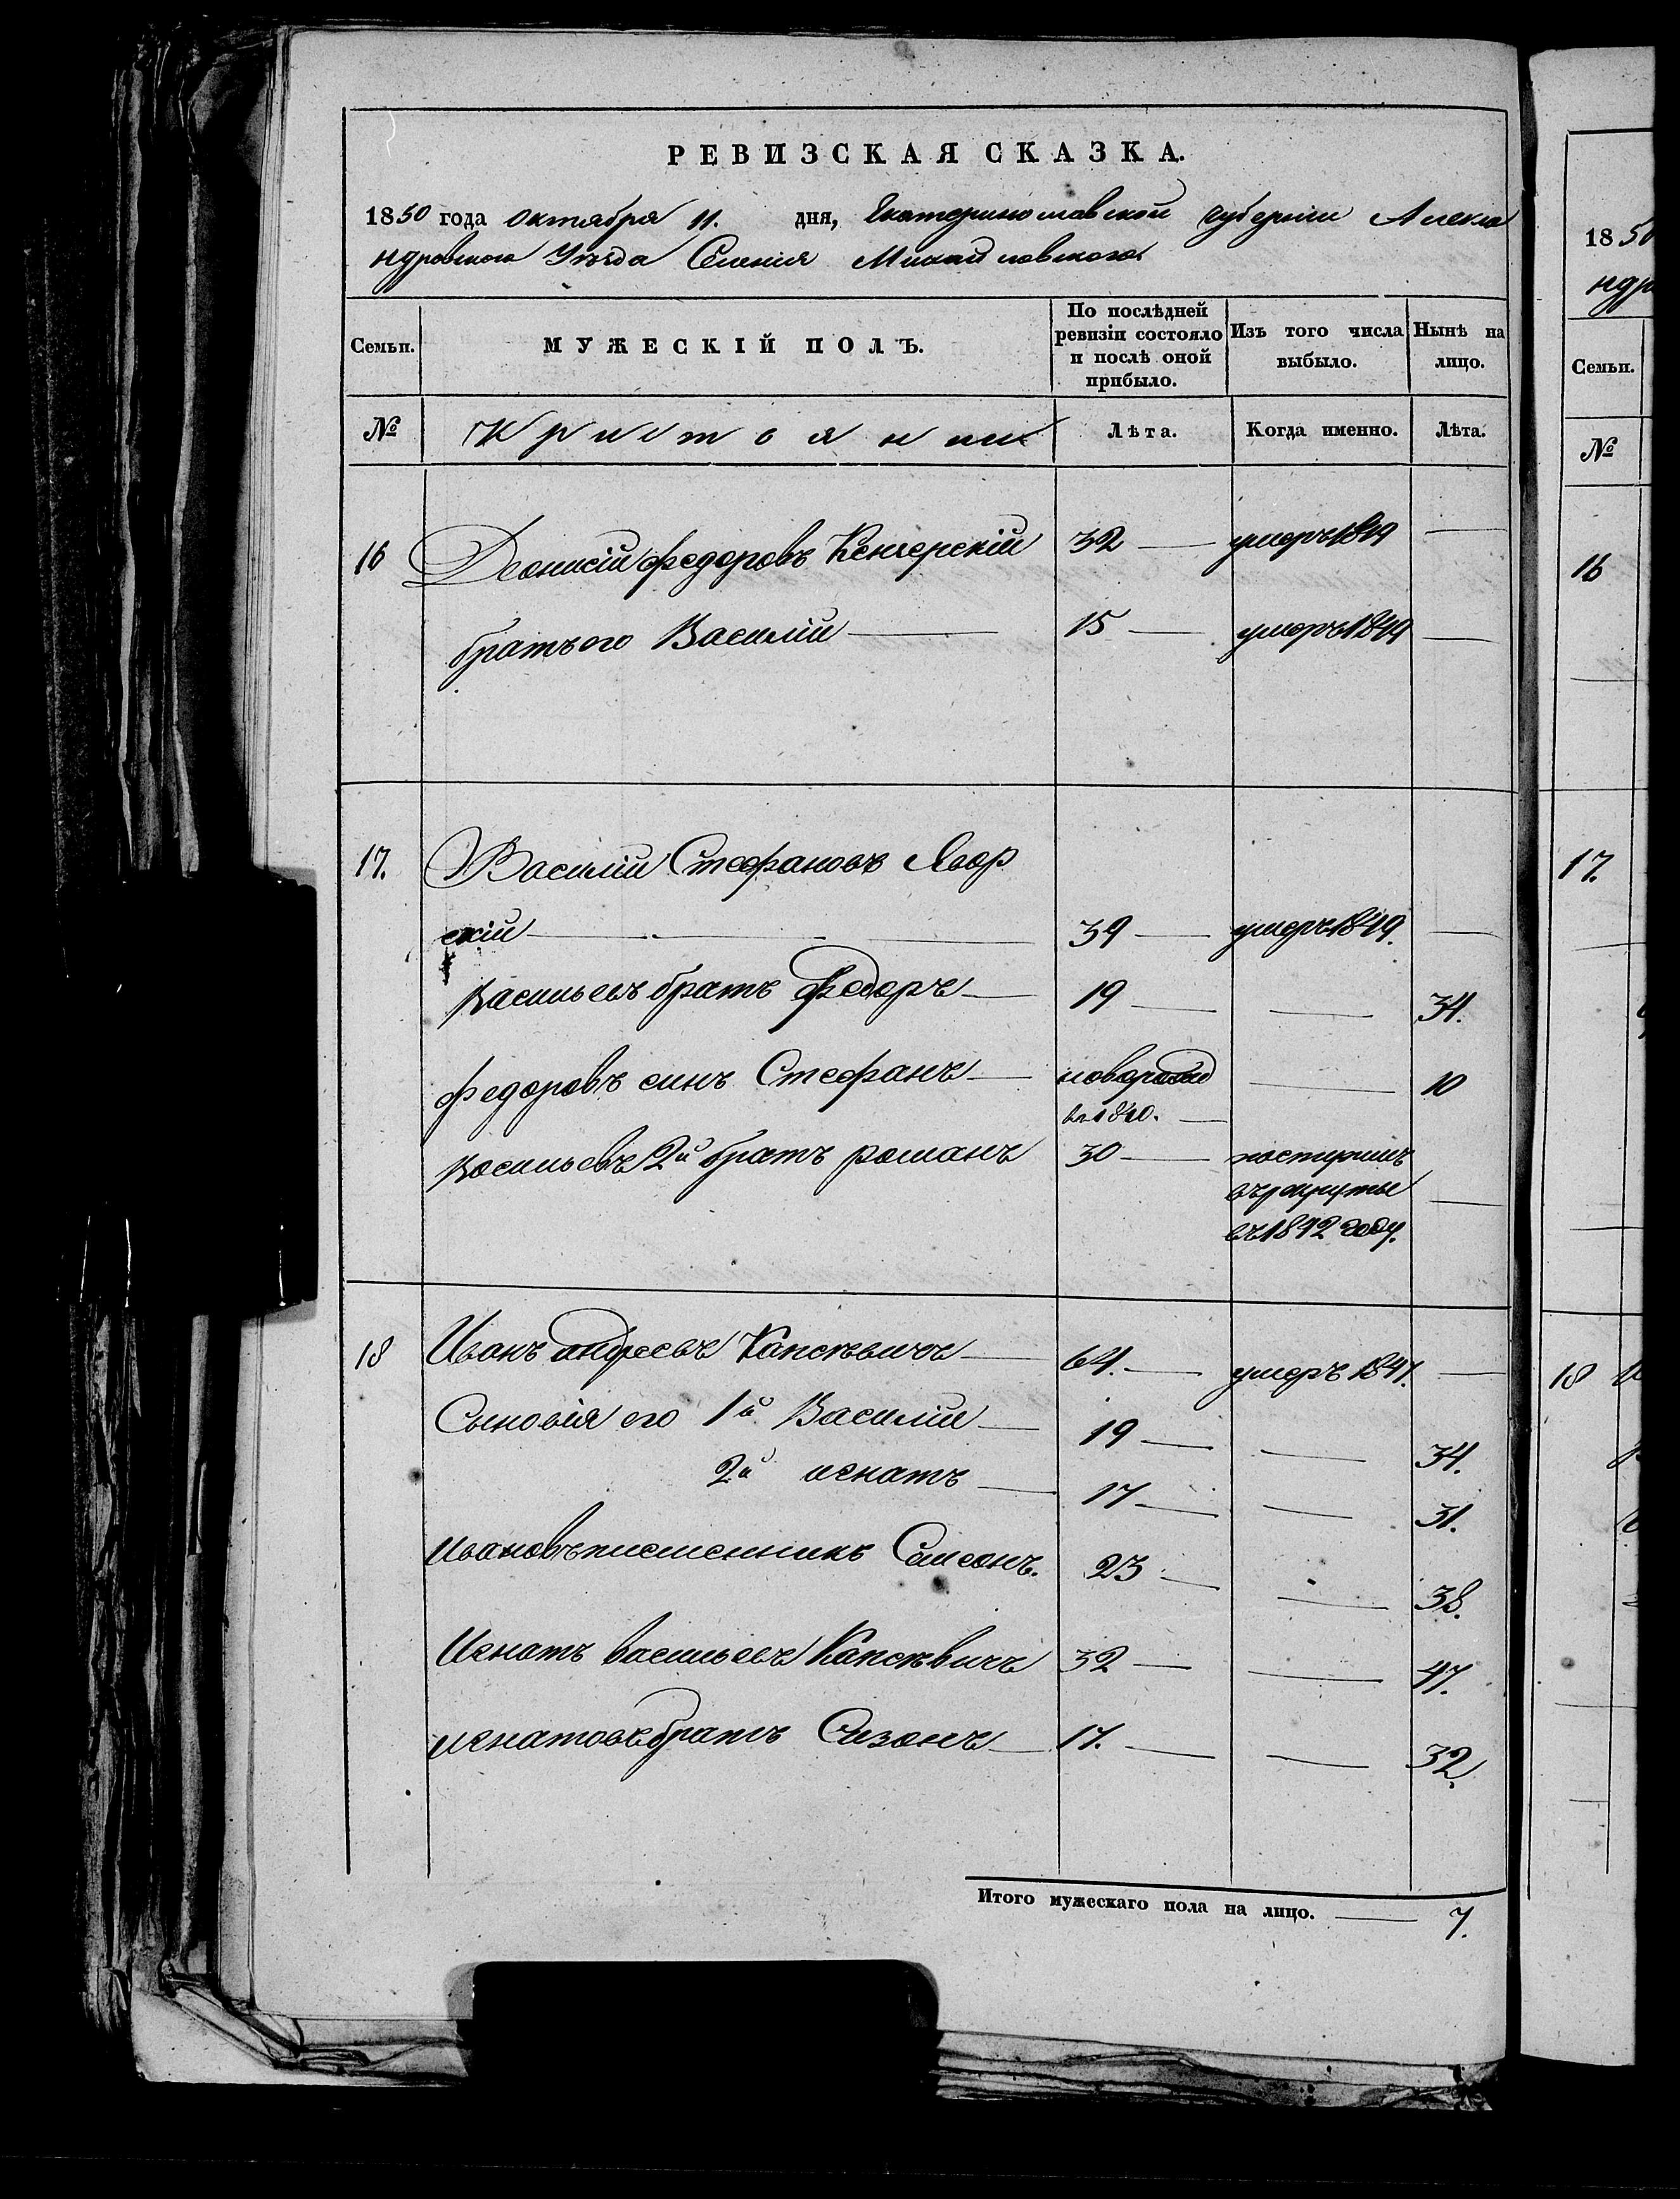 РЕВИЗСКАЯ СКАЗКА.
1850 года Октября 11. дня, Екатеринославской губернии Алекса
ндровского Уѣзда Селения Михайловского
Семьи.
МУЖЕСКІЙ ПОЛЪ.
По послѣдней ревизіи состояло и послѣ оной прибыло.
Изъ того числа выбыло.
Нынѣ на лицо.
№ Лѣта. Когда именно. Лѣта.
16 Деонисій федоровъ 32 — умеръ 1849 —
братъ его Василій — 15 — умеръ 1844 —
17. Василій Стефановъ Явор
скій — 39 — умеръ 1849. —
Васильевъ братъ Федоръ — 19 — — 34.
федоровъ синъ Стефанъ — новорожд — 10
въ 1840. —
Васильевъ 2й братъ романъ 30 — поступилъ
въ рекруты —
въ 1842 году.
18 Иванъ андреевъ Капсѣвичъ — 64. — умеръ 1847. —
Сыновія его 1й Василій — 19 — — 34.
2й игнатъ — 17 — — 31.
Ивановъ племенникъ Самсонъ. 23 — — 38.
Игнатъ васильевъ Капсѣвичъ 32 — — 47.
игнатовъ братъ Сизонъ — 17. — — 32.
Итого мужескаго пола на лицо. — 7.
1850
ндр
Семьи.
№
16
17.
18